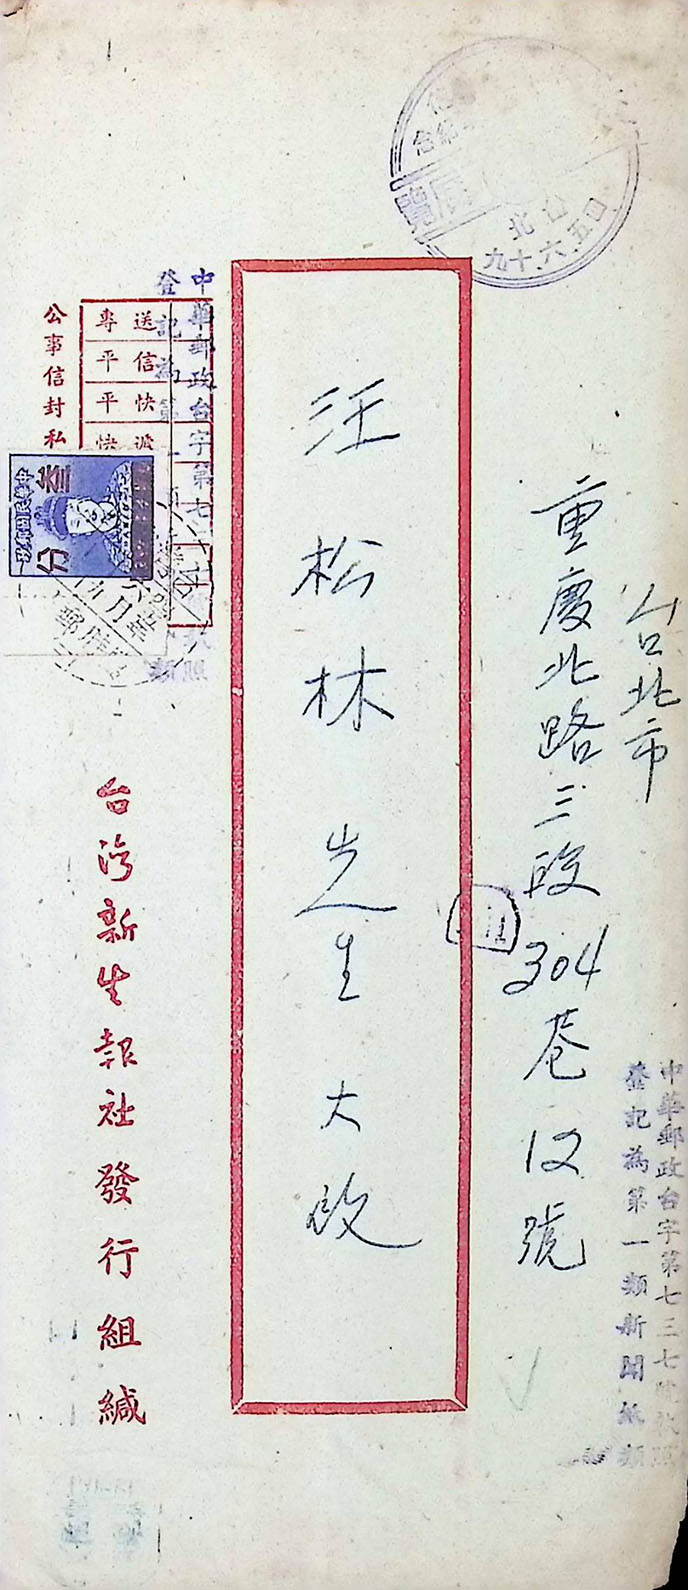 台北市
重慶北路三段304巷12號
汪松林先生大啟
台灣新生報社發行組緘
中華郵政台字第七三七號執照
登記為第一類新聞紙類
中華郵政台字第七
登記為第一
公事信封私
專送
平信
平快
快遞
中華民國郵政
叁分
念紀
展覽
台北
九十.六.五四